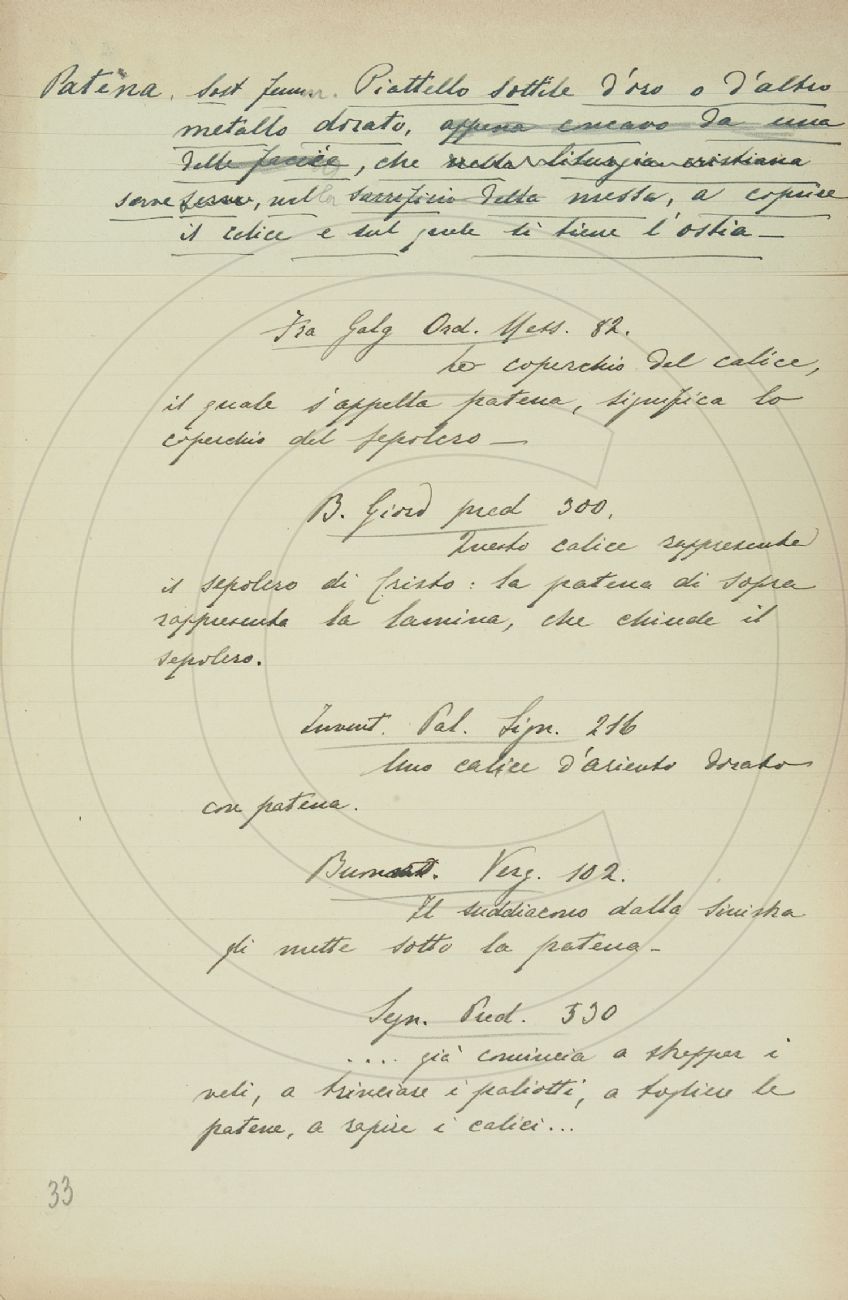 Patena. Sost femm. Piattello sottile d'oro o d'altro
metallo dorato, appena concavo da una
delle faccie, che nella liturgia cristiana
serve, nel sacrificio della messa, a coprire
il calice e sul quale si tiene l'ostia —
Fra Galg Ord. Mess. 82.
Lo coperchio del calice,
il quale s'appella patena, significa lo
coperchio del sepolcro —
B. Giord pred 300.
Questo calice rappresenta
il sepolcro di Cristo: la patena di sopra
rappresenta la lamina, che chiude il
sepolcro.
Invent. Pal. Sign. 216
Uno calice d'ariento dorato
con patena.
Verg. 102.
Il suddiacono dalla sinistra
gli mette sotto la patena —
Segn. Pred. 530
.... già comincia a strappar i
veli, a trinciare i paliotti, a togliere le
patene, a rapire i calici...
33